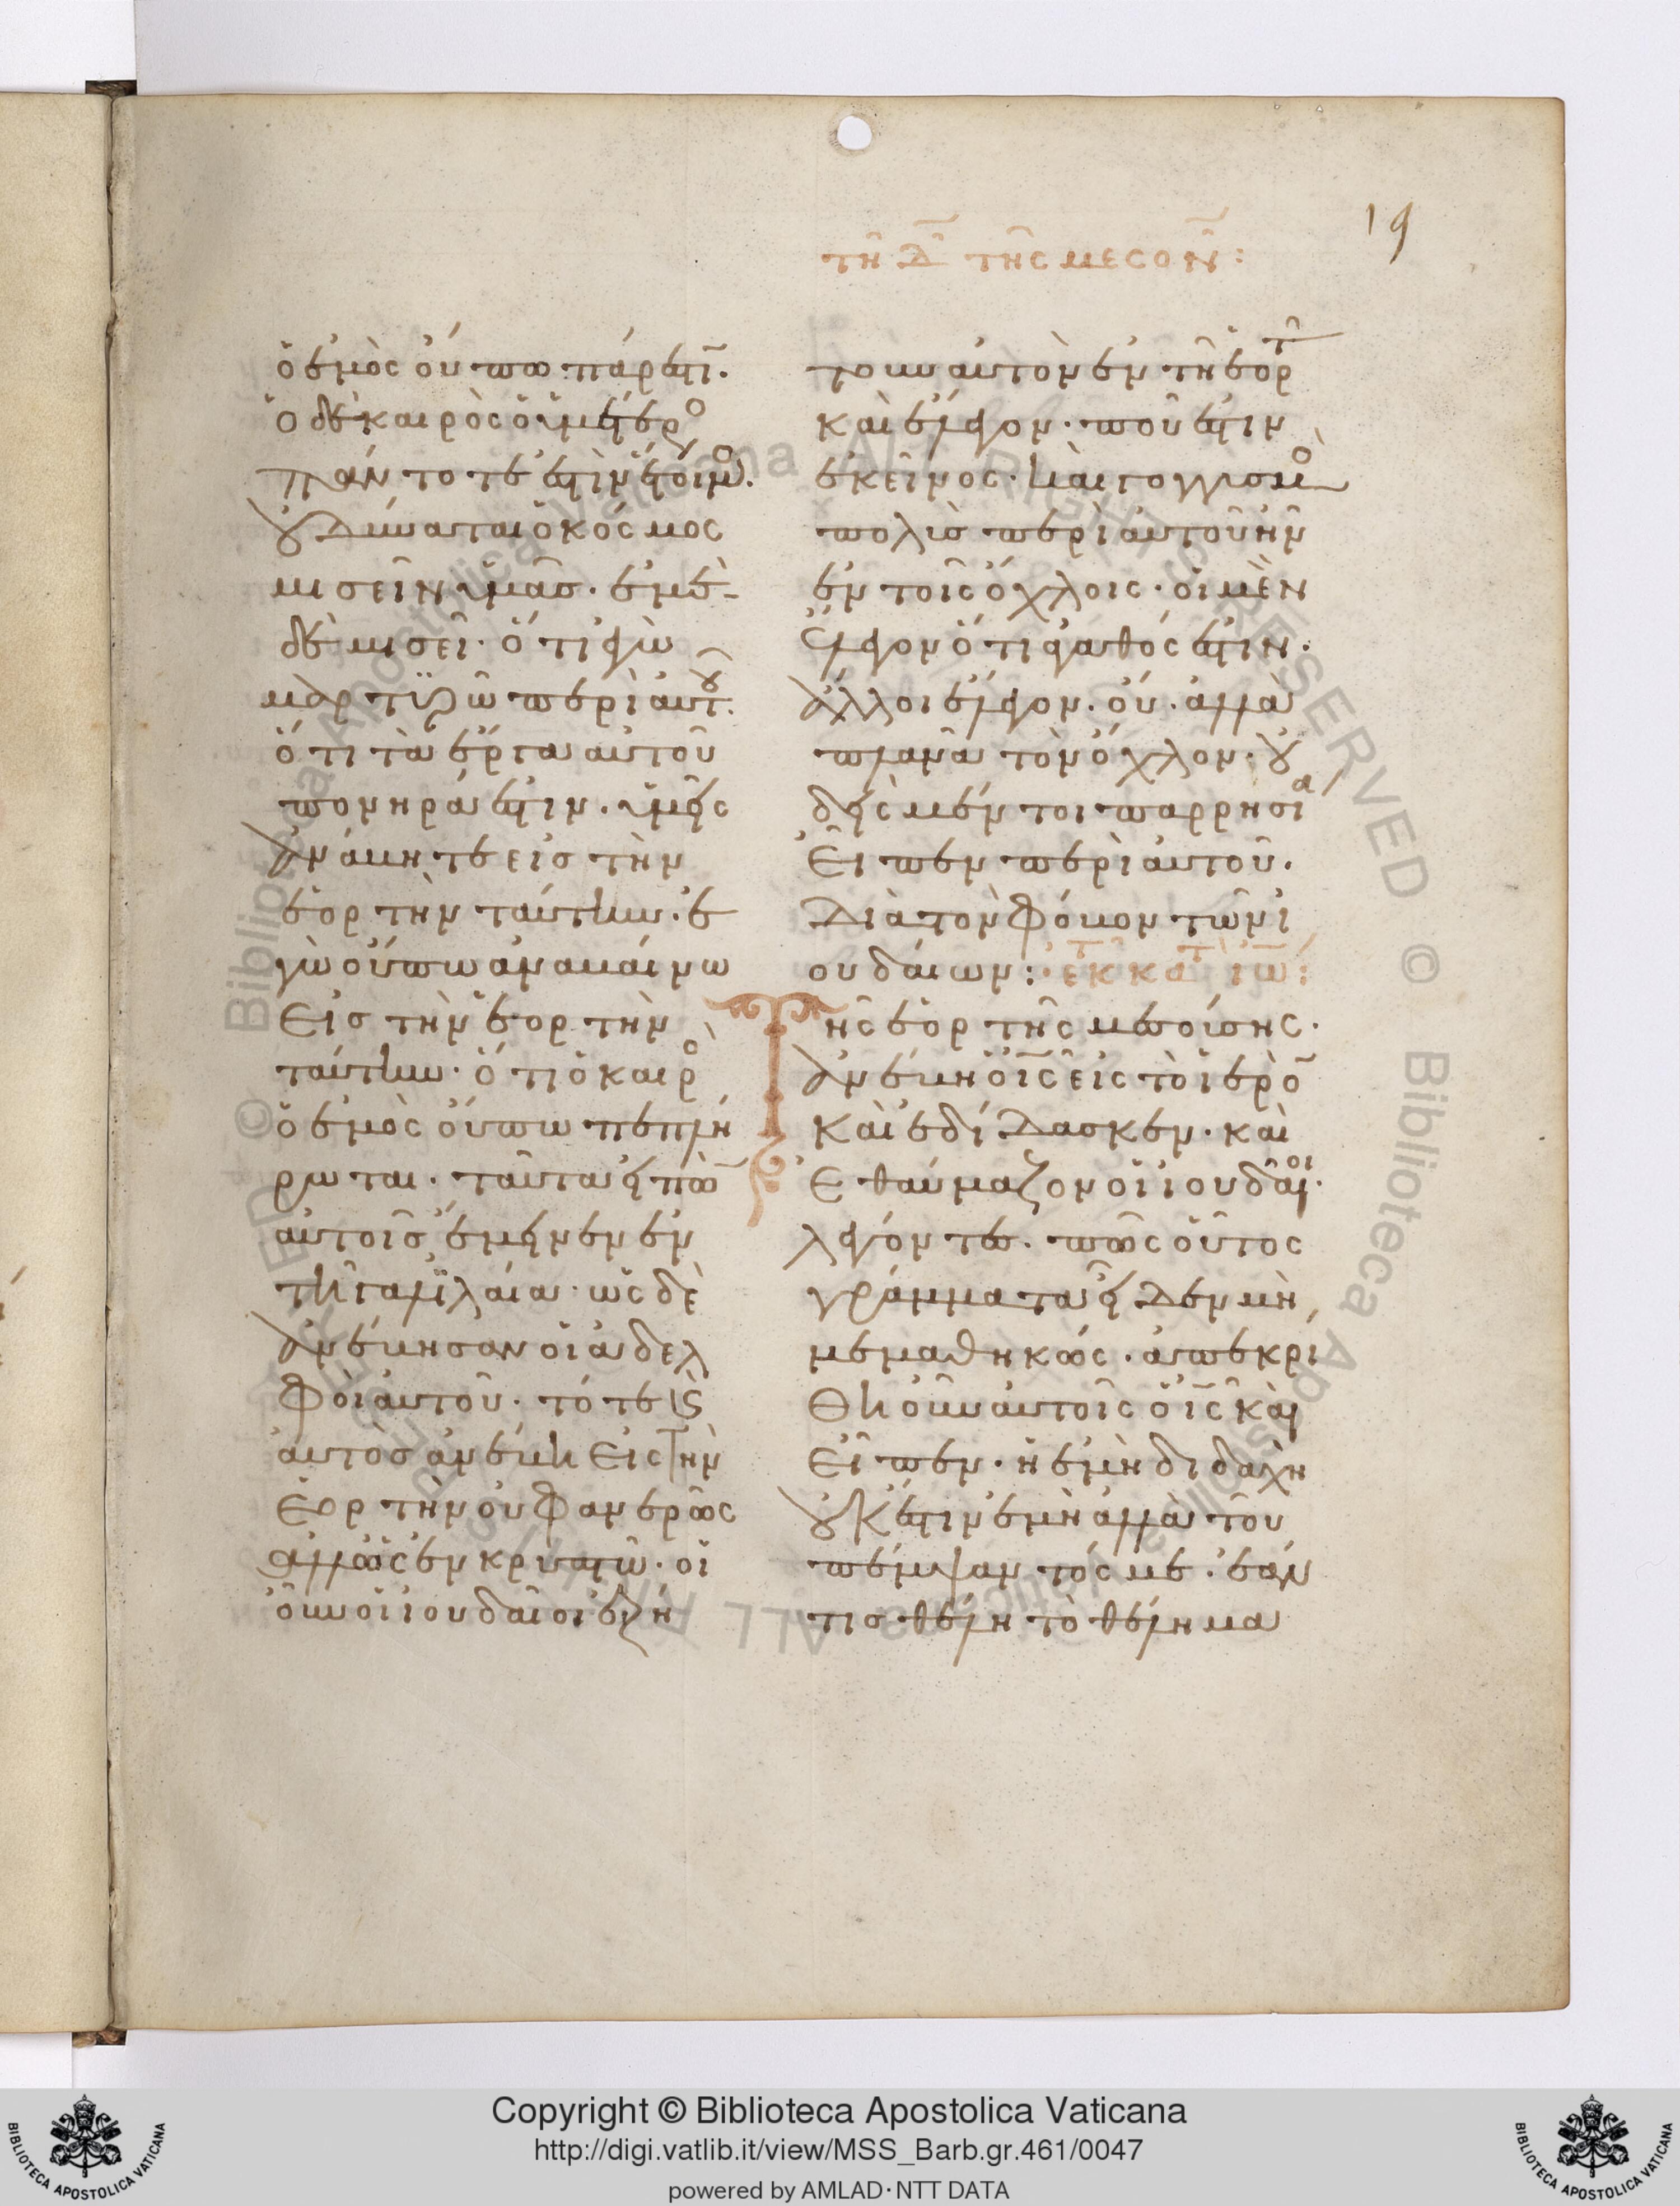 19
τῆ Δ̅ τῆς μεσον̅:
ὁ ἐμὸς οὔπω πάρεστι̅.
ὁ δὲ καιρὸς ὁ ὑμέτερο
πάντοτέ ἐστὶν ἕτοιμο.
οὐ δύναται ὁ κόσμος
μισεῖν ὑμᾶσ. ἐμὲ
δὲ μισεῖ. ὅτι ἐγὼ
μαρτϋρῶ περὶ αὐτοῦ.
ὅτι τὰ ἔργα αὐτοῦ
πονηρά ἐστιν. ὑμεῖς
ἀνάβητε εἰσ τὴν
ἑορτὴν ταύτην. ἐ
γὼ οὔπω ἀναβαίνω
εἰσ τὴν ἑορτὴν
ταύτην. ὅτι ὁ καιρὸ
ὁ ἐμὸς οὔπω πεπλή
ρωται. ταῦτα εἰπὼ̅
αὐτοῖσ ἔμεινεν ἐν
τῆ γαλιλαία. ὡς δὲ
ἀνέβησαν οἱ ἀδελ
φοὶ αὐτοῦ. τότε κ̀
αὐτὸσ ἀνέβη εἰς τὴν
ἑορτὴν οὐ φανερῶς
ἀλλ' ὡς ἐν κρυπτῶ. οἱ
οὖν οἱ ἰουδαῖοι ἐζή
τουν αὐτὸν ἐν τῆ ἑορτῆ
καὶ ἔλεγον. ποῦ ἐστιν
ἐκεῖνος. καὶ γογγυσμὸ
πολὺσ περὶ αὐτοῦ ἦν
ἐν τοῖς ὄχλοις. οἱ μὲν
ἔλεγον ὅτι ἀγαθός ἐστιν.
ἄλλοι ἔλεγον. οὔ. ἀλλὰ
πλανᾶ τὸν ὄχλον. οὐ
δεὶς μέντοι παρρησία
εἶπεν περὶ αὐτοῦ.
Διὰ τὸν φόβον τῶν ἰ
ουδαίων: ἐκ κατ ἰω̅:
Τῆς ἑορτῆς μεσούσης.
ἀνέβη ὁ ι̅ς̅ εἰς τὸ ἱερὸ̅
καὶ ἐδίδασκεν. καὶ
ἐθαύμαζον οἱ ἰουδαῖοι.
λέγοντες. πῶς οὗτος
γράμματα οἶδεν μὴ
μεμαθηκώς. ἀπεκρί
θη οὖν αὐτοῖς ὁ ι̅ς̅ καὶ
εἶπεν. ἡ ἐμὴ διδαχὴ
οὐκ ἔστιν ἐμὴ ἀλλὰ τοῦ
πέμψαντός με. ἐάν
τισ θέλη τὸ θέλημα
Copyright © Biblioteca Apostolica Vaticana
http://digi.vatlib.it/view/MSS_Barb.gr.461/0047
powered by AMLAD·NTT DATA
BIBLIOTECA APOSTOLICA VATICANA
BIBLIOTECA APOSTOLICA VATICANA